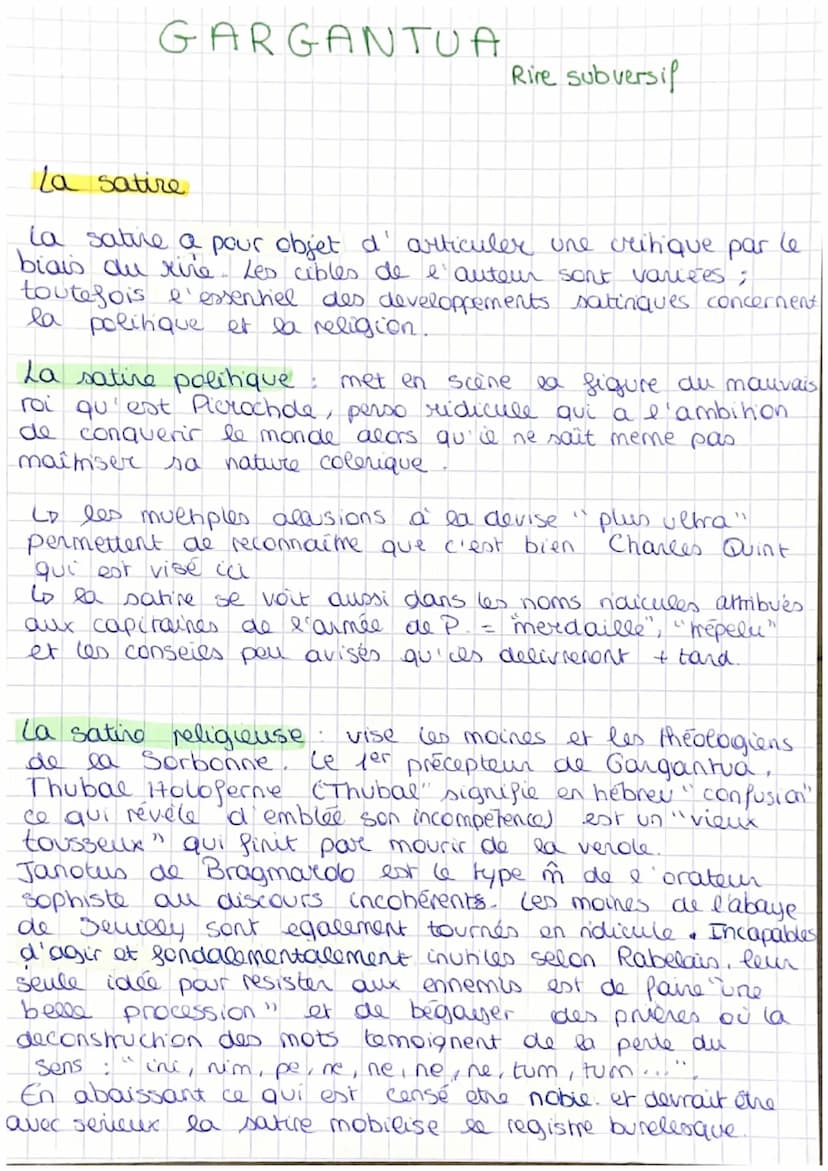 GARGANTUA
Rire subversif
La satire
La satire a pour objet d'articuler une critique par le
biais du rire. Les cibles de l'auteur sont variées ;
toutefois l'essentiel des developpements satiriques concernent
la politique et la religion.
La satire politique : met en scène la figure du mauvais
roi qu'est Picrochole, perso ridicule qui a l'ambition
de conquerir le monde alors qu'il ne sait meme pas
maîtriser sa nature colerique.
↳ les multiples allusions à la devise "plus ultra"
permettent de reconnaitre que c'est bien Charles Quint
qui est visé ici
↳ la satire se voit aussi dans les noms ridicules attribués
aux capitaines de l'armée de P. = "merdaille", "trépelu"
et les conseils peu avisés qu'ils delivreront + tard.
La satire religieuse : vise les moines et les théologiens
de la Sorbonne. Le 1er précepteur de Gargantua,
Thubal Holoferne ("Thubal" signifie en hébreu "confusion"
ce qui révèle d'emblée son incompétence) est un "vieux
tousseux" qui finit par mourir de la verole.
Janotus de Bragmardo est le type m̂ de l'orateur
sophiste au discours incohérents. Les moines de l'abaye
de Seuilly sont egalement tournés en ridicule. Incapables
d'agir et fondalementalement inutiles selon Rabelais, leur
seule idée pour resister aux ennemis est de faire "une
belle procession" et de bégayer des prières où la
deconstruction des mots temoignent de la perte du
sens : "ini, nim, pe, ne, ne, ne, ne, tum, tum...".
En abaissant ce qui est censé etre noble et devrait être
avec serieux la satire mobilise le registre burelesque.